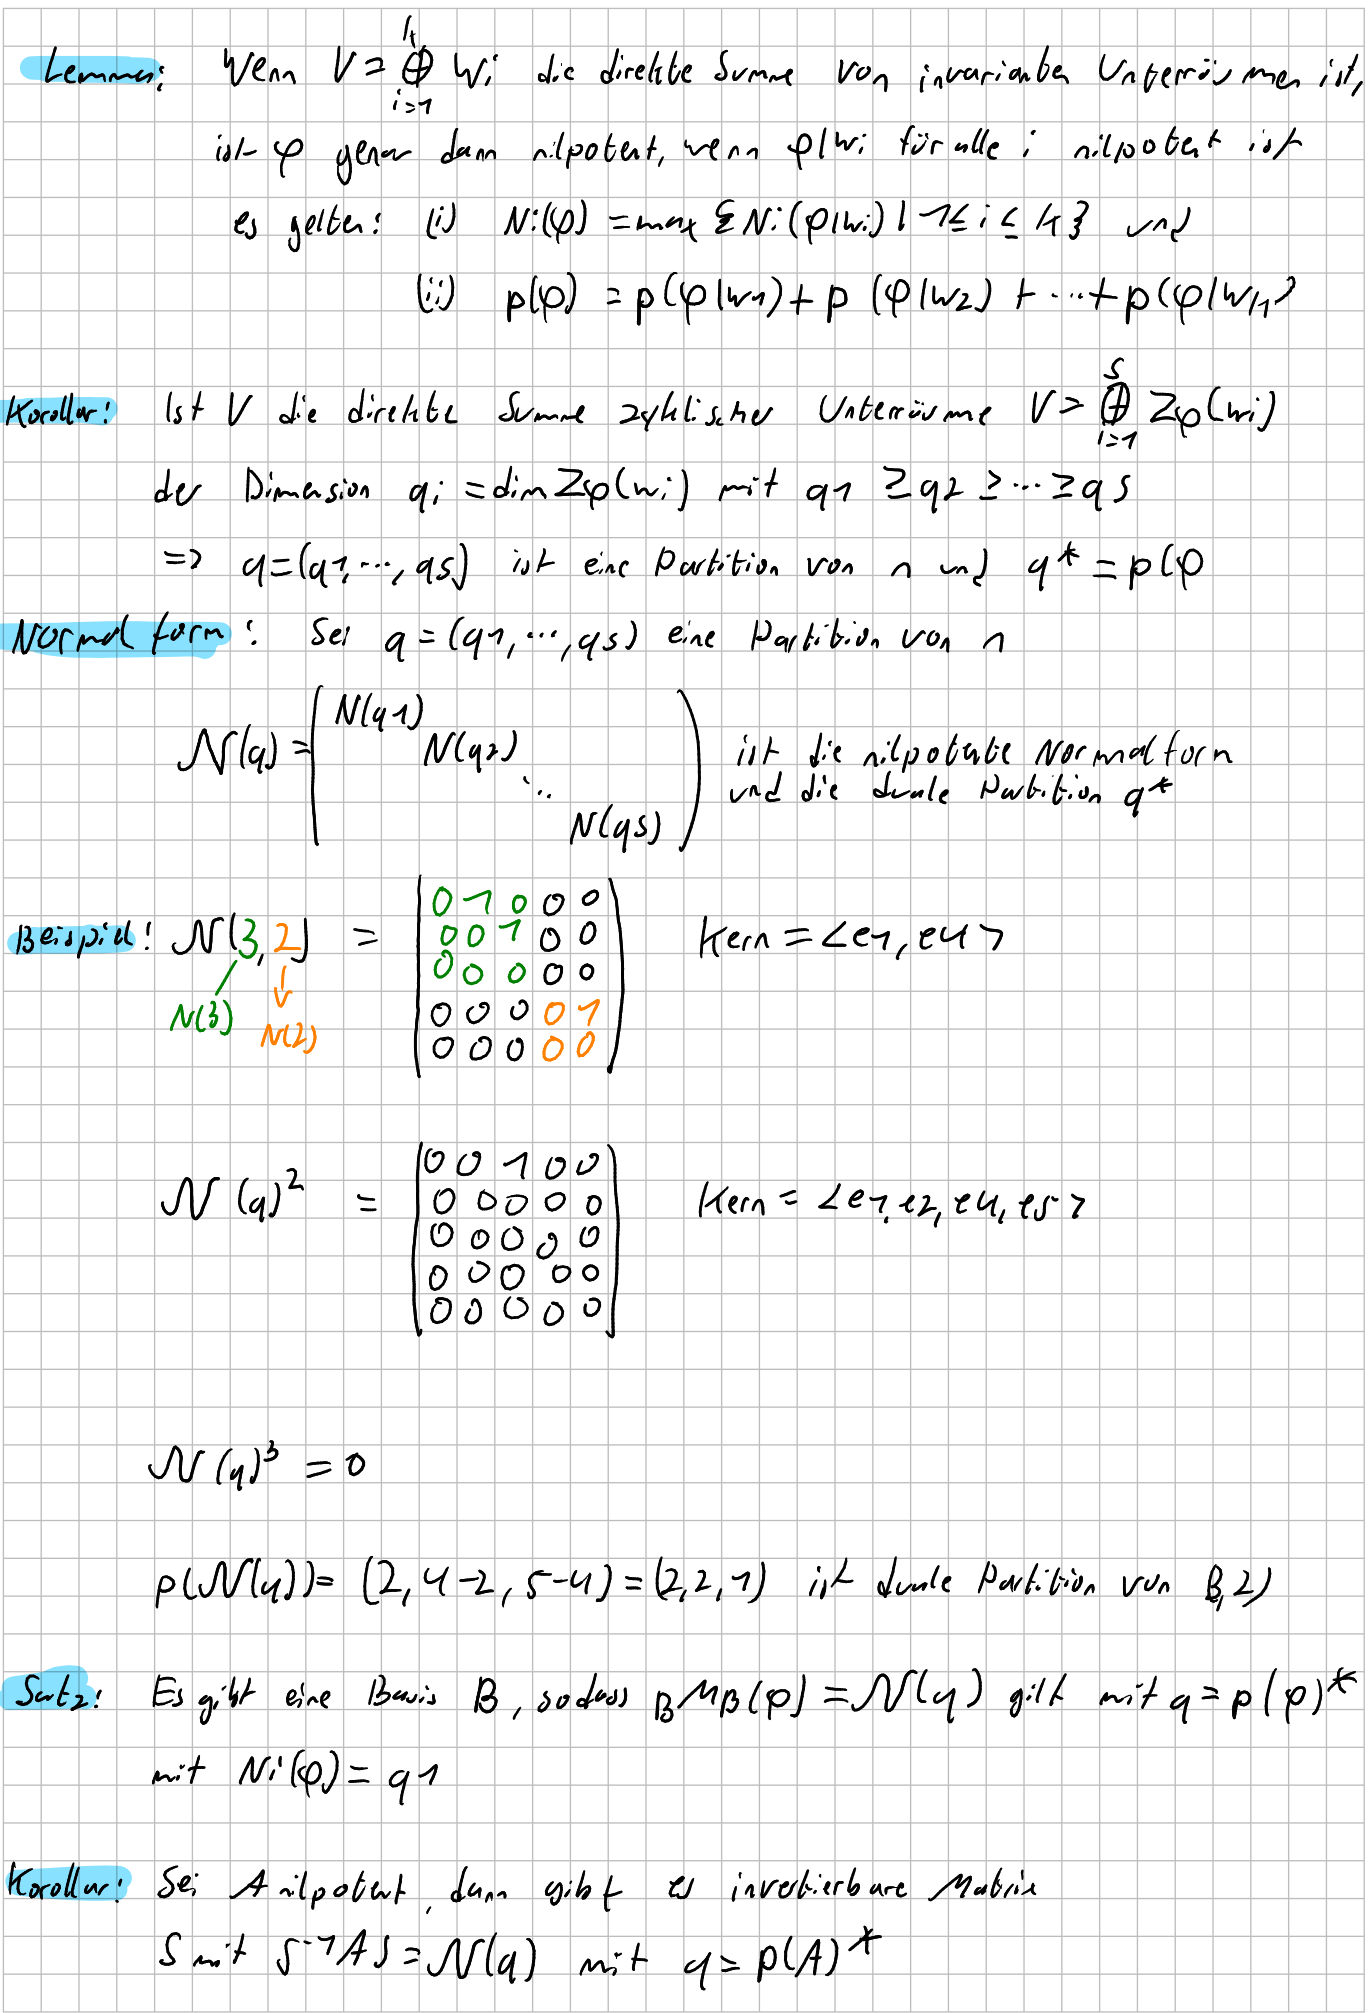 Lemma: Wenn V = ⊕_{i=1}^{k} Wi die direkte Summe von invarianten Unterräumen ist,
ist φ genau dann nilpotent, wenn φ|Wi für alle i nilpotent ist
es gelten: (i) Ni(φ) = max {Ni(φ|Wi) | 1 ≤ i ≤ k} und
(ii) p(φ) = p(φ|W1) + p(φ|W2) + ... + p(φ|Wk)
Korollar: Ist V die direkte Summe zyklischer Unterräume V = ⊕_{i=1}^{s} Zφ(wi)
der Dimension qi = dim Zφ(wi) mit q1 ≥ q2 ≥ ... ≥ qs
=> q = (q1, ..., qs) ist eine Partition von n und q* = p(φ
Normal form: Sei q = (q1, ..., qs) eine Partition von n
N(q) = ( N(q1) N(q2) ... N(qs) ) ist die nilpotente Normalform
und die duale Partition q*
Beispiel: N(3,2) =
0 1 0 0 0
0 0 1 0 0
0 0 0 0 0
0 0 0 0 1
0 0 0 0 0
Kern = <e1, e4>
N(3) N(2)
N(q)² =
0 0 1 0 0
0 0 0 0 0
0 0 0 0 0
0 0 0 0 0
0 0 0 0 0
Kern = <e1, e2, e4, e5>
N(q)³ = 0
p(N(q)) = (2, 4-2, 5-4) = (2,2,1) ist duale Partition von (3,2)
Satz: Es gibt eine Basis B, sodass BMB(φ) = N(q) gilt mit q = p(φ)*
mit Ni(φ) = q1
Korollar: Sei A nilpotent, dann gibt es invertierbare Matrix
S mit S^-1AS = N(q) mit q = p(A)*